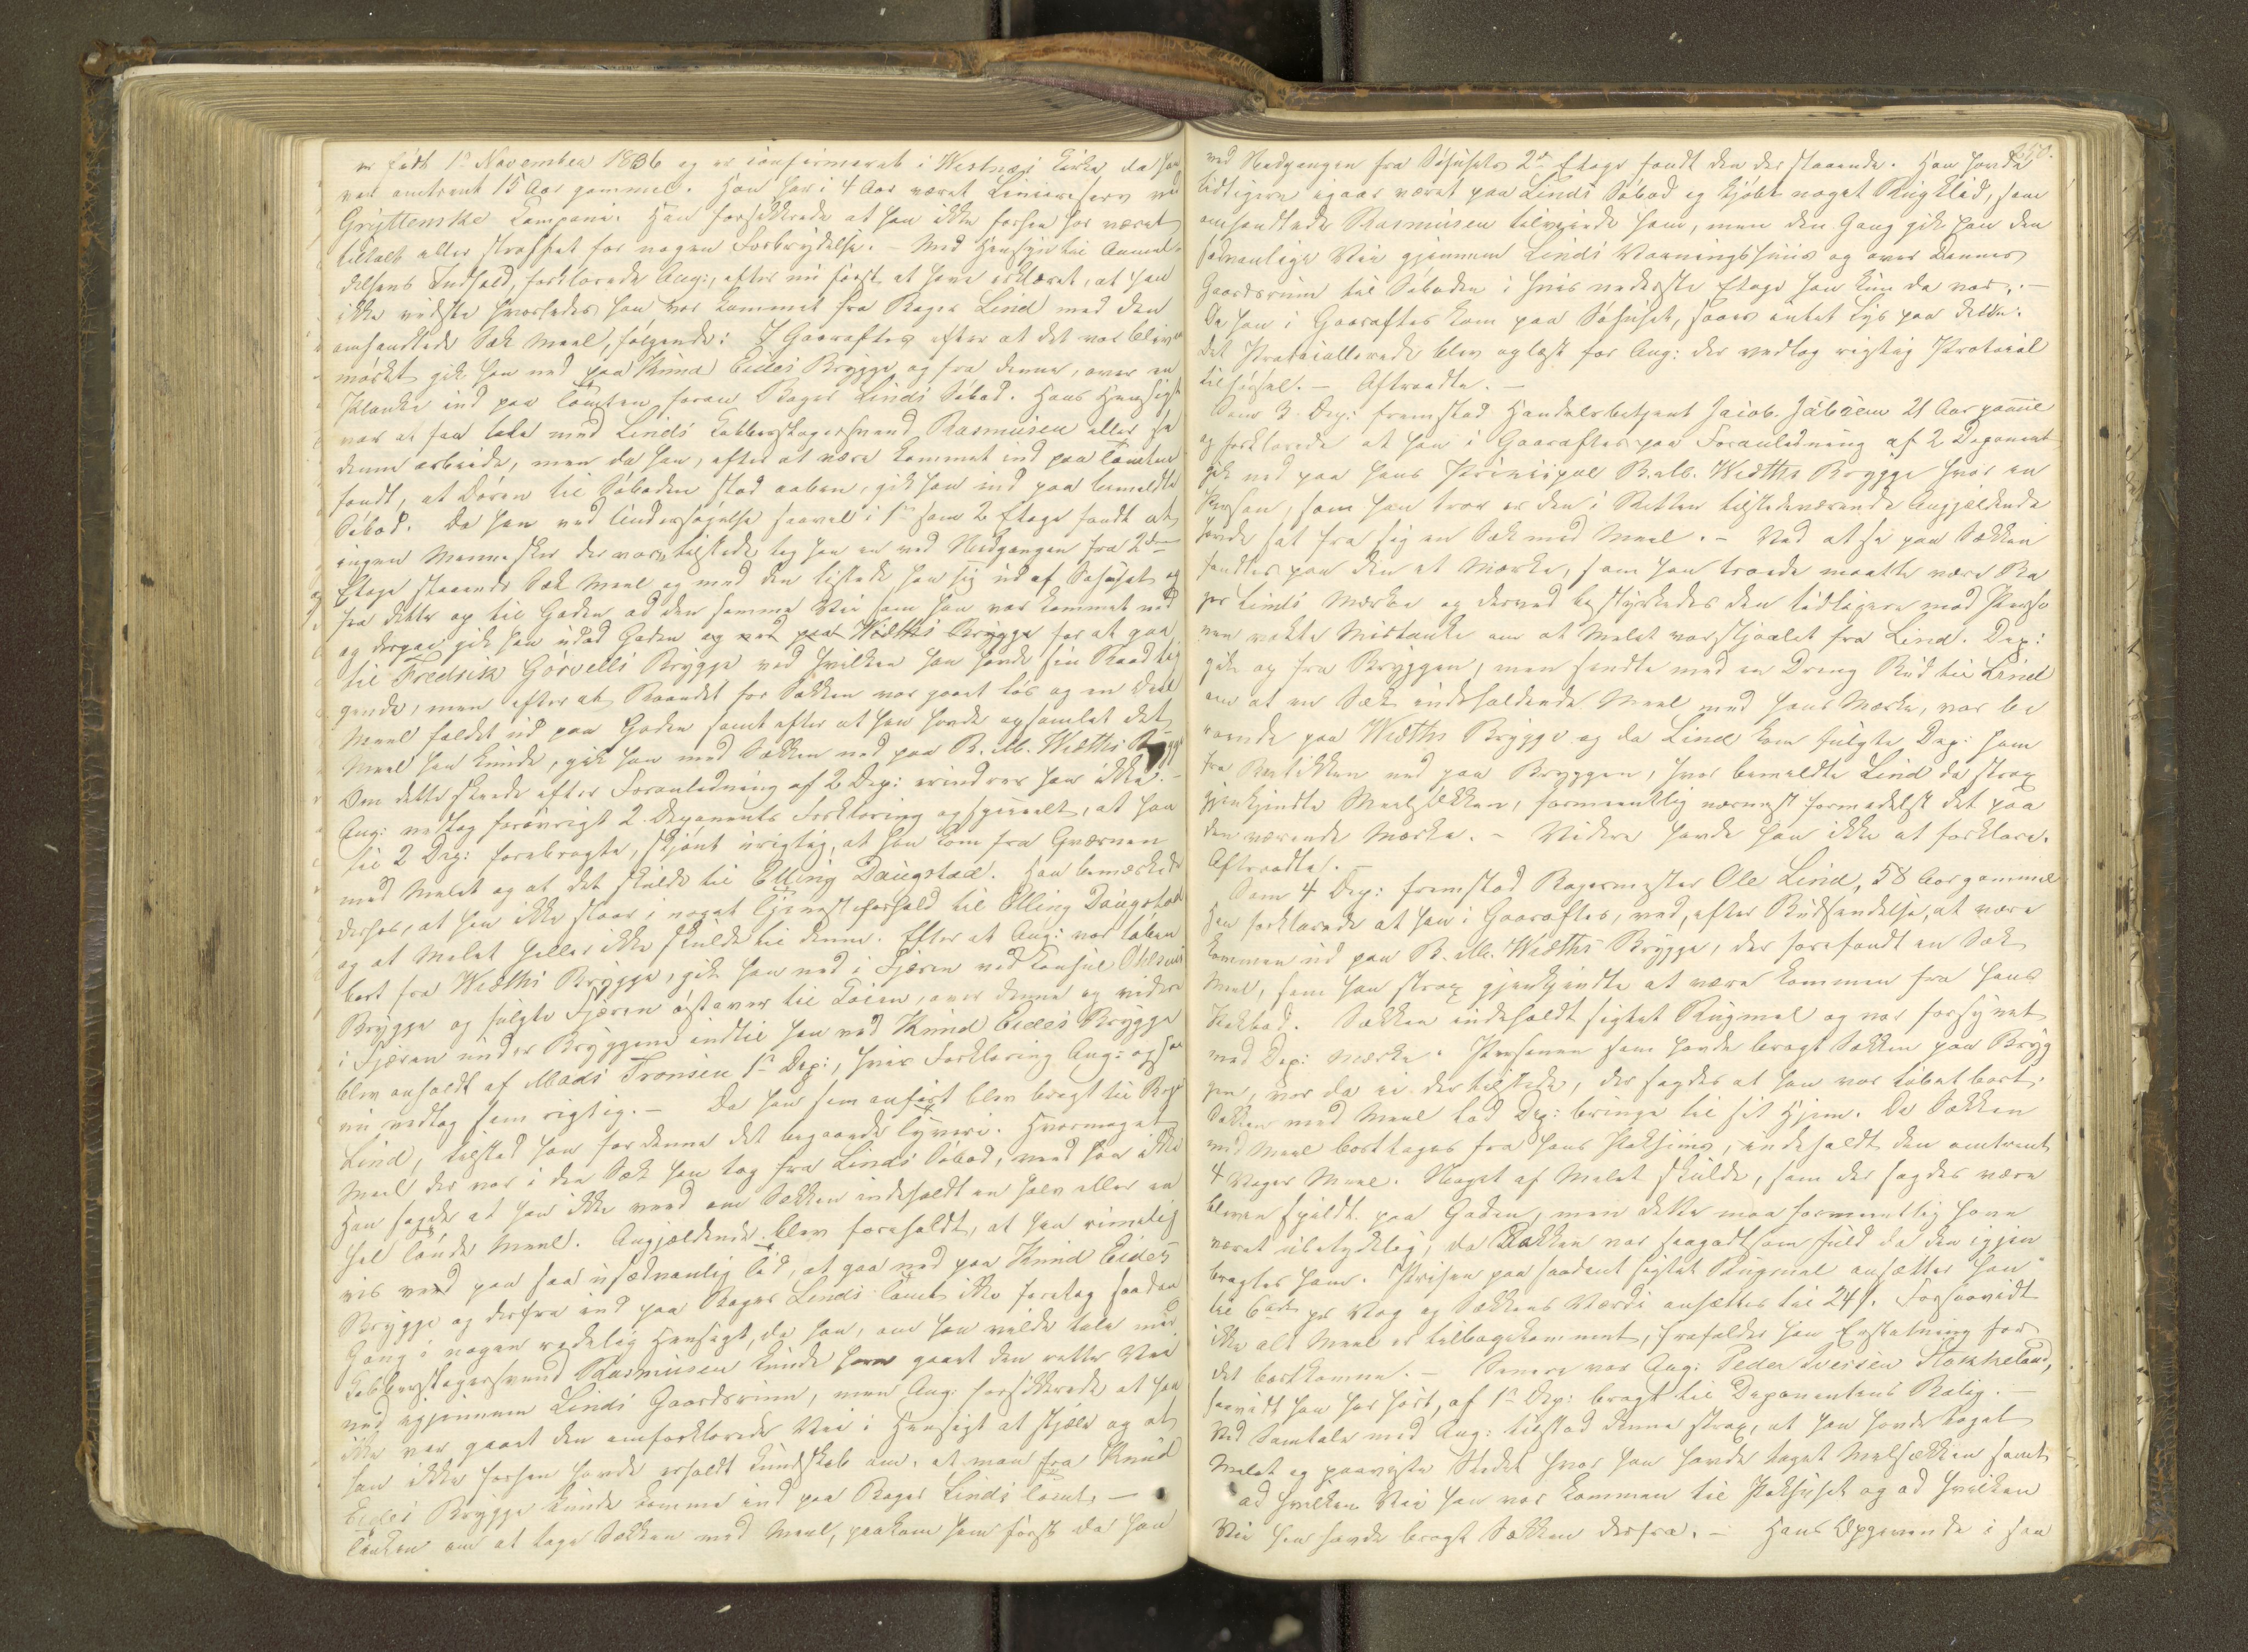 er født 1ste November 1836 og er confirmeret i Westnæs Kirke da han
var omtrent 15 Aar gammel. Han har i 4 Aar været Linieroserv ved
Gryttenske Compani. Han forsikkrede at han ikke forhen har været
tiltalt eller straffet for nogen Forbrydelse. – Med Hensyn til Anmel-
delsens Indhold, forklarede Ang:, efter nu først at have erklæret, at han
ikke vidste hvorledes han var kommet fra Bager Lind med den
omhandlede Sæk Meel, følgende: I Gaaraftes efter at det var bleven
mørkt gik han ned paa Knud Eides Brygge og fra denne, over en
Planke ind paa Tomten foran Bager Linds Søbod. Hans Hensigt
var at faa tale med Linds Kobberslagersvend Rasmusen eller se
denne arbeide, men da han, efter at være kommet ind paa Tomten
fandt, at Døren til Søboden stod aaben, gik han ind paa bemeldte
Søbod. Da han ved Undersøgelse saavel i 1ste som 2 Etage fandt at
ingen Mennesker der vare tilstede tog han en ved Nedgangen fra 2den
Etage staaende Sæk Meel og med den listede han sig ud af Søhuset og
fra dette op til Gaden ad den samme Vei som han var kommet ned
og derpaa gik han udad Gaden og ned paa Wiðths Brygge for at gaa
til Fredrik Görvells Brygge ved hvilken han havde sin Baad lig-
gende, men efter at Baandet for Sækken var gaaet løs og en Deel
Meel faldet ud paa Gaden samt efter at han havde opsamlet det
Meel han kunde, gik han med Sækken ned paa B. M. Wiðths Brygge
Om dette skeede efter Foranledning af 2 Dep: erindrer han ikke. –
Ang: vedtog forøvrigt 2. Deponents Forklaring og specielt, at han
til 2 Dep: forebragte, skjønt urigtig, at han kom fra Qværnen
med Melet og at det skulde til Elling Daugstad. Han bemærkede
derhos, at han ikke staar i noget Tjenesteforhold til Elling Daugstad
og at Melet heller ikke skulde til denne. Efter at Ang: var løben
bort fra Wiðths Brygge, gik han ned i Fjæren ved Consul Ohlsens
Brygge og fulgte Fjæren østover til Toien, over denne og videre
i Fjæren under Bryggene indtil han ved Knud Eides Brygge
blev anholdt af Mads Tronsen 1ste Dep:, hvis Forklaring Ang: ogsaa
nu vedtog som rigtig. – Da han som anført blev bragt til Bager
Lind, tilstod han for denne det begaaede Tyveri. Hvormeget
Meel der var i den Sæk han tog fra Linds Søbod, veed han ikke
Han sagde at han ikke veed om Sækken indeholdt en halv eller en
hel Tønde Meel. Angjældende blev foreholdt, at han rimelig-
vis ved paa saa usædvanlig Tid, at gaa ned paa Knud Eides
Brygge og derfra ind paa Bager Linds Tomt ikke foretog saadan
Gang i nogen redelig Hensigt, da han, om han vilde tale med
Kobberslagersvend Rasmusen kunde have gaaet den rette Vei
ned igjennem Linds Gaardsrum, men Ang: forsikkrede at han
ikke var gaaet den omforklarede Vei i Hensigt at stjæle og at
han ikke forhen havde erholdt Kundskab om, at man fra Knud
Eides Brygge kunde komme ind paa Bager Linds Tomt. –
Tanken om at tage Sækken med Meel, paakom ham først da han
350.
ved Nedgangen fra Søhusets 2den Etage fandt den der staaende. Han havde
tidligere igaar været paa Linds Søbod og kjøbt noget Rugklid, som
omhandlede Rasmusen tilveiede ham, men den Gang gik han den
sædvanlige Vei gjennem Linds Vaaningshuus og over dennes
Gaardsrum til Søboden i hvis nederste Etage han kun da var. –
Da han i Gaaraftes kom paa Søhuset, saaes intet Lys paa dette.
Det Protocollerede blev oplæst for Ang: der vedtog rigtig Protocol-
tilførsel. – Aftraadte. –
Som 3. Dep: fremstod Handelsbetjent Jacob Jabsen 21 Aar gammel
og forklarede at han i Gaaraftes paa Foranledning af 2 Deponent
gik ned paa hans Principal B. M. Wiðths Brygge hvor en
Person, som han tror er den i Retten tilstedeværende Angjældende
havde sat fra sig en Sæk med Meel. – Ved at se paa Sækken
fandtes paa den et Mærke, som han troede maatte være Ba-
ger Linds Mærke og derved bestyrkedes den tidligere mod Perso-
nen vakte Mistanke om at Melet var stjaalet fra Lind. Dep:
gik op fra Bryggen, men sendte med en Dreng Bud til Lind
om at en Sæk indeholdende Meel med hans Mærke, var be-
roende paa Wiðths Brygge og da Lind kom fulgte Dep: ham
fra Butikken ned paa Bryggen, hvor bemeldte Lind da strax
gjenkjendte Meelsækken, formeentlig nærmest formedelst det paa
den værende Mærke. – Videre havde han ikke at forklare.
Aftraadte. –
Som 4 Dep: fremstod Bagermester Ole Lind, 58 Aar gammel
Han forklarede at han i Gaaraftes, ved, efter Budsendelse, at være
kommen ud paa B. M. Wiðths Brygge, der forefandt en Sæk
Meel, som han strax gjenkjendte at være kommen fra hans
Pakbod. Sækken indeholdt sigtet Rugmel og var forsynet
med Dep: Mærke. Personen som havde bragt Sækken paa Bryg-
gen, var da ei der tilstede, der sagdes at han var løbet bort.
Sækken med Meel lod Dep: bringe til sit Hjem. Da Sækken
med Meel borttoges fra hans Pakhuus, indeholdt den omtrent
4 Voger Meel. Noget af Melet skulde, som der sagdes være
bleven spildt paa Gaden, men dette maa formeentlig have
været ubetydelig, da Sækken var saagodtsom fuld da den igjen
bragtes ham. Prisen paa saadant sigtet Rugmel ansætter han
til 6 ort pr Vog og Sækkens Værdi ansættes til 24 s. Forsaavidt
ikke alt Meel er tilbagekommet, frafalder han Erstatning for
det bortkomne. – Senere var Ang: Peder Iversen Stokkeland,
saavidt han har hørt, af 1ste Dep: bragt til Deponentens Bolig. –
Ved Samtale med Ang: tilstod denne strax, at han havde taget
Melet og paaviste Stedet hvor han havde taget Melsækken samt
ad hvilken Vei han var kommen til Pakhuset og ad hvilken
Vei han havde bragt Sækken derfra. – Hans Opgivende i saa